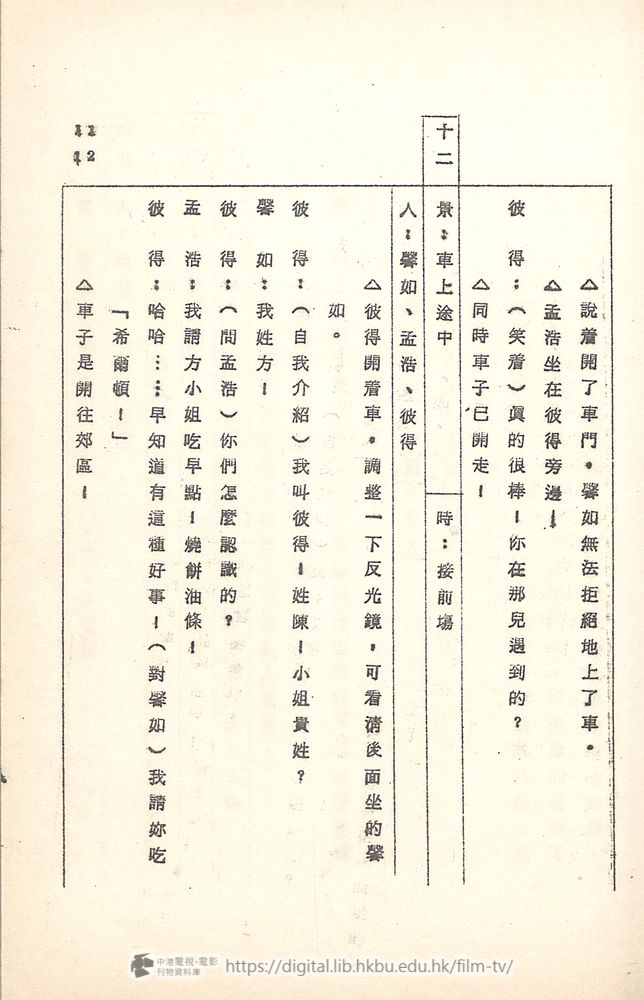 △說着開了車門。馨如無法拒絕地上了車。
△孟浩坐在彼得旁邊！
彼　得：（笑着）眞的很棒！你在那兒遇到的？
△同時車子已開走！
十二　景：車上途中　時：接前場
人：馨如、孟浩、彼得
△彼得開着車。調整一下反光鏡，可看清後面坐的馨
如。
彼　得：（自我介紹）我叫彼得！姓陳！小姐貴姓？
馨　如：我姓方！
彼　得：（問孟浩）你們怎麼認識的？
孟　浩：我請方小姐吃早點！燒餅油條！
彼　得：哈哈……早知道有這種好事！（對馨如）我請妳吃
「希爾頓！」
△車子是開往郊區！
11
12
中港電視·電影
刊物資料庫
https://digital.lib.hkbu.edu.hk/film-tv/